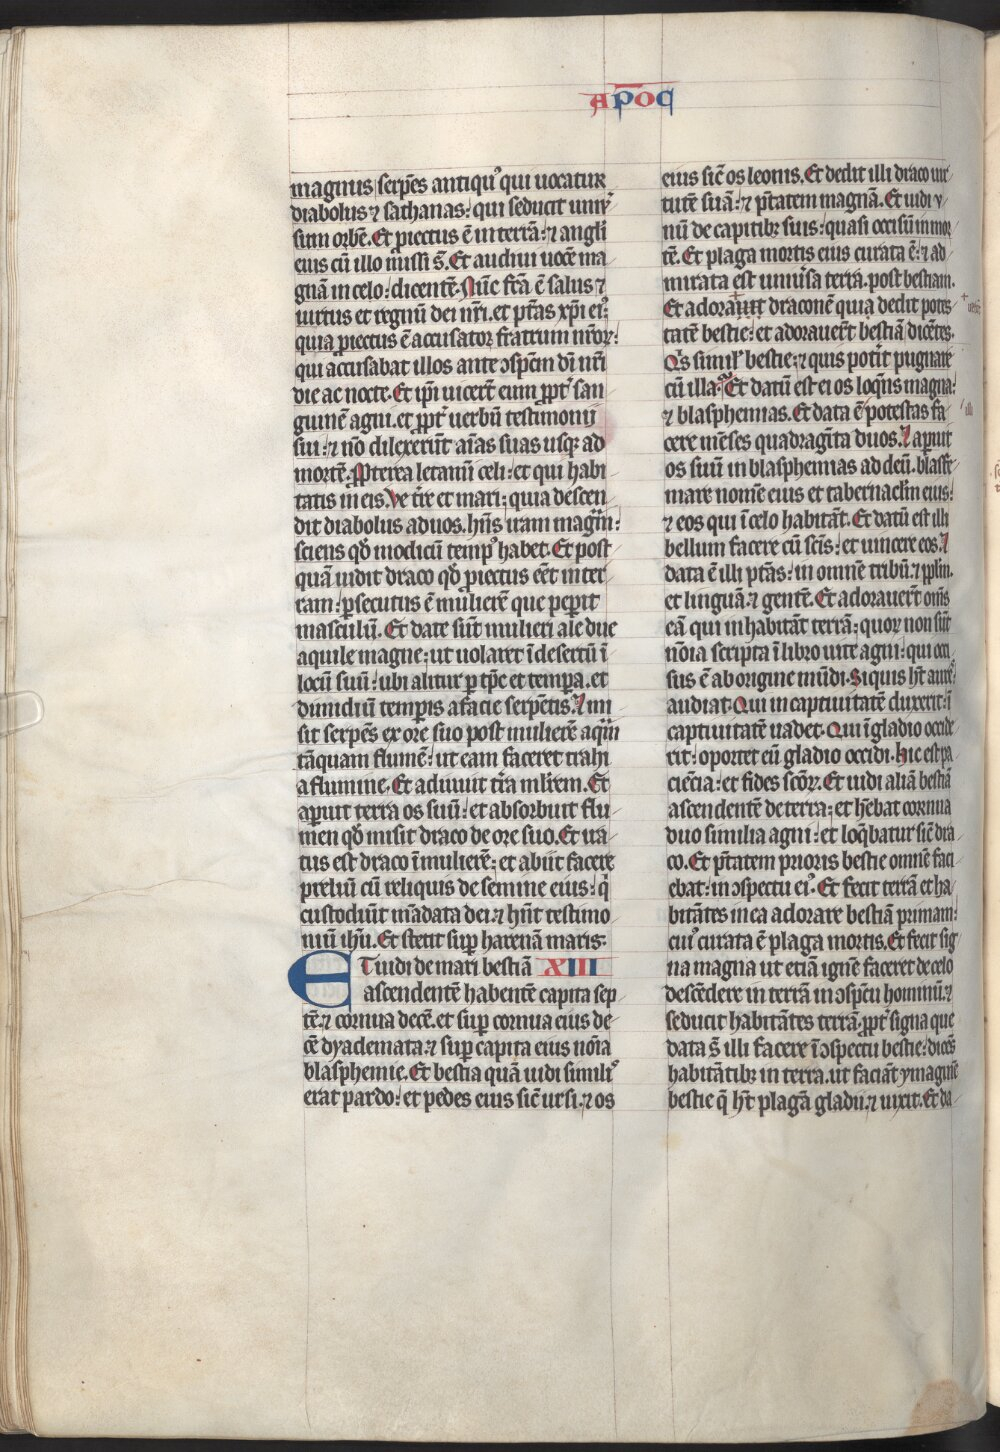 Apoc̄
magnus serpēs antiqu᷒ qui uocatur
diabolus ⁊ sathanas: qui seducit uniꝰ
sum orbē. Et ꝓiectus ē in terrā: ⁊ angli
eius cū illo missi s̄. Et audiui uocē ma
gnā in celo: dicentē. Nūc fc̄a ē salus ⁊
uirtus et regnū dei nr̄i. et ptās xp̄i eiꝰ:
quia ꝓiectus ē accusator fratrum nr̄oꝝ:
qui accusabat illos ante ɔspc̄m dī nr̄i
die ac nocte. Et ip̄i uicert̄ eum ꝓpt̄ san
guinē agni. et ꝓpt̄ uerbū testimonij
sui: ⁊ nō dilexerūt aīas suas usqꝫ ad
mortē. ꝓpterea letamī celi: et qui habi
tatis in eis. Ve tr̄e et mari: quia descen
dit diabolus ad uos. hn̄s iram magm̄:
sciens qđ modicū tempꝰ habet. Et post
quā uidit draco qđ ꝓiectus eēt in ter
ram: ꝑsecutus ē mulierē que peperit
masculū. Et date sūt mulieri ale due
aquile magne: ut uolaret ī desertū ī
locū suū: ubi alitur ꝑ tp̄c et tempa. et
dimidiū temp̄is a facie serpētis. ⁊ mi
sit serpēs ex ore suo post mulierē aqm̄
tāquam flumē: ut eam faceret trahi
a flumine. Et adiuuit tr̄a ml̄rem. Et
aperuit terra os suū: et absorbuit flu
men qđ misit draco de ore suo. Et ira
tus est draco ī mulierē: et abiit facere
preliū cū reliquis de semine eius: q̄
custodiūt mādata dei: ⁊ hn̄t testimo
niū ih̄u. Et stetit suꝑ harenā maris:
ET uidi de mari bestiā XIII
ascendentē habentē capita sep
tē: ⁊ cornua decē. et suꝑ cornua eius de
cē dyademata: ⁊ suꝑ capita eius nōia
blasphemie. Et bestia quā uidi similiꝰ
erat pardo: et pedes eius sic̄ ursi: ⁊ os
eius sic̄ os leonis. Et dedit illi draco uir
tutē suā: ⁊ ptātem magnā. Et uidi v
nū de capitibꝫ suis: quasi occisū in mor
tē. Et plaga mortis eius curata ē: ⁊ ad
mirata est uniu̓sa terra. post bestiam.
Et adorauit draconē quia dedit potes
tatē bestie: et adorauert̄ bestiā dicētes.
Qͥs simil᷒ bestie: ⁊ quis potīt pugnare
cū illa. Et datū est ei os loqn̄s magna:
⁊ blasphemias. Et data ē potestas fa
cere mēses quadragīta duos. ⁊ aperuit
os suū in blasphemias ad deū. blasfe
mare nomē eius et tabernaclm̄ eius:
⁊ eos qui ī celo habitāt. Et datū est illi
bellum facere cū scīs: et uincere eos. ⁊
data ē illi ptās: in omnē tribū: ⁊ pplm̄.
et linguā: ⁊ gentē. Et adorauert̄ om̄s
eā qui inhabitāt terrā: quoꝝ non sūt
nōia scripta ī libro uite agni: qui occi
sus ē ab origine mūdi. Siquis ht̄ aurē:
audiat. Qui in captiuitatē duxerit: ī
captiuitatē uadet. Qui ī gladio occide
rit: oportet eū gladio occidi. hic est pa
ciēcia: et fides scōꝝ. Et uidi aliā bestiā
ascendentē de terra: et hēbat cornua
duo similia agni: et loqbatur sic̄ dra
co. Et ptātem prioris bestie omnē faci
ebat: in ɔspectu eiꝰ. Et fecit terrā et ha
bitātes in ea adorare bestiā primam:
cuiꝰ curata ē plaga mortis. Et fecit sig
na magna ut etiā ignē faceret de celo
descēdere in terrā in ɔspc̄tu hominū. ⁊
seducit habitātes terrā. ꝓpt̄ signa que
data s̄ illi facere ī ɔspectu bestie: dicēs
habitātibꝫ in terra. ut faciāt ymaginē
bestie q̄ ht̄ plagā gladii: ⁊ uixit. Et da